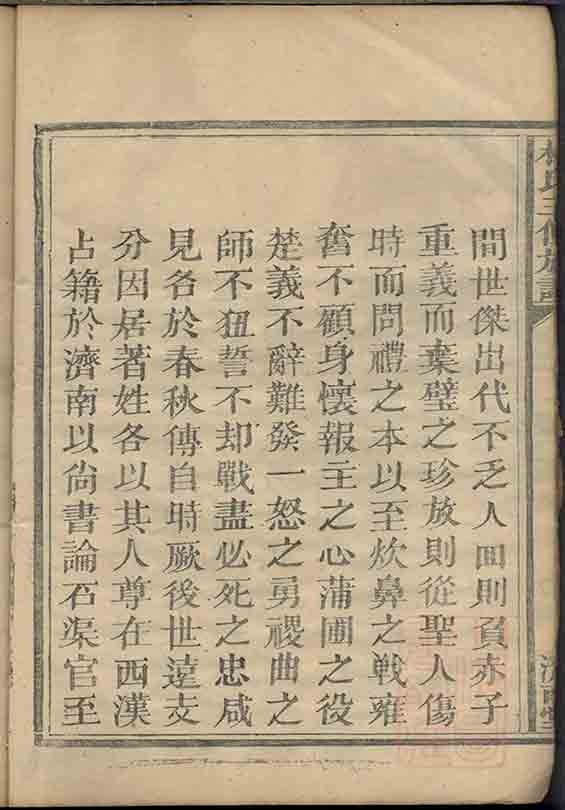 林氏三修族譜
間世傑出代不乏人回則負赤子
重義而棄璧之珍放則從聖人傷
時而問禮之本以至炊鼻之戦雍
奮不顧身懷報主之心蒲圃之役
楚義不辭難發一怒之勇禝曲之
師不狃誓不却戰盡必死之忠咸
見各於春秋傳自時厥後世遠支
分因居著姓各以其人尊在西漢
占籍於濟南以尚書論石渠官至